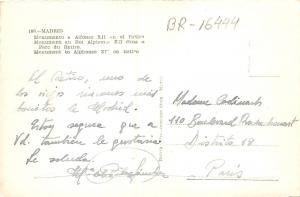 BR-16444
180.-MADRID
Monumento a Alfonso XII en el Retiro
Monument au Roi Alphonse XII dans le
Parc du Retiro
Monument to Alphonse XII on Retiro
El Retiro, uno de
los viejos rincones más
bonitos de Madrid.
Estoy segura que a
Vd. también le gustaría
Le saluda.
Madame
110 Boulevard
District 18
Paris